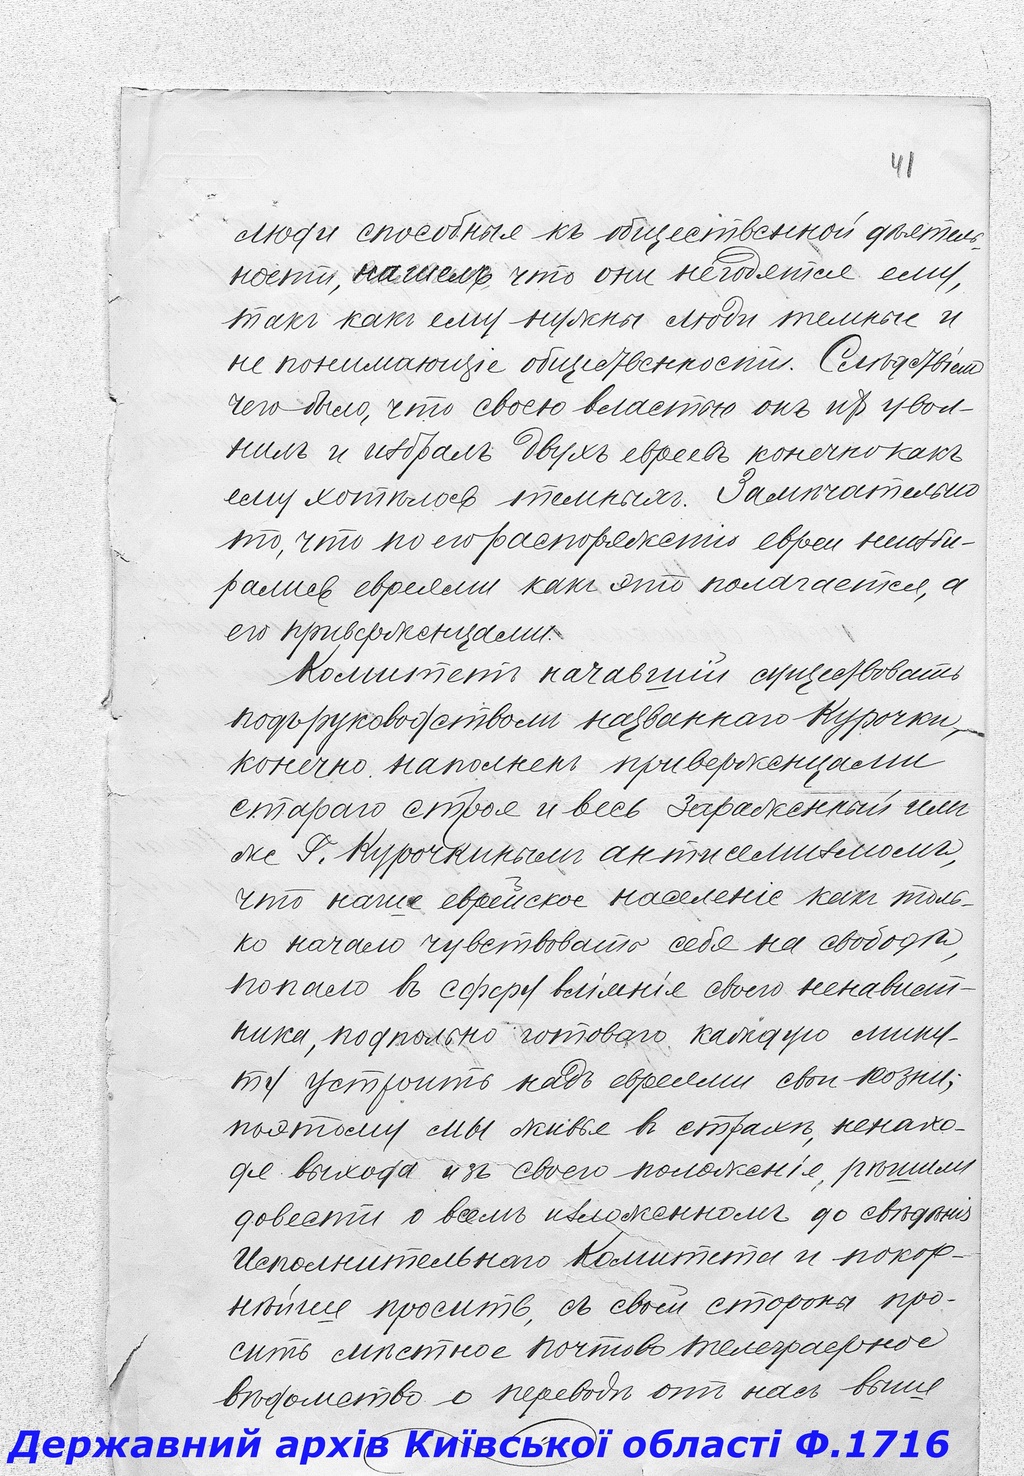 41
люди способныя къ общественной дѣятель-
ности, нашелъ, что они негодятся ему,
такъ какъ ему нужны люди темные и
не понимающіе общественности. Слѣдствіемъ
чего было, что своею властью онъ ихъ увол-
нилъ и избралъ двухъ евреевъ конечно какъ
ему хотѣлось темныхъ. Замѣчательно
то, что по его распоряженію евреи неизби-
рались евреями какъ это полагается, а
его приверженцами.
Комитетъ начавшій существовать
подъ руководствомъ названнаго Курочки,
конечно наполненъ приверженцами
стараго строя и весь зараженный имъ
же Г. Курочкинымъ антисемитизмомъ,
что наше еврейское населеніе какъ толь-
ко начало чувствовать себя на свободѣ,
попало въ сферу вліянія своего ненавист-
ника, подпольно готоваго каждую мину-
ту устроить надъ евреями свои козни;
поэтому мы живя въ страхѣ, ненахо-
дя выхода изъ своего положенія, рѣшили
довести о всемъ изложенномъ до свѣдѣнія
Исполнительнаго Комитета и покор-
нѣйше просить, съ своей стороны про-
сить мѣстное почтово телеграфное
вѣдомство о переводѣ отъ насъ выше
Державний архів Київської області Ф.1716